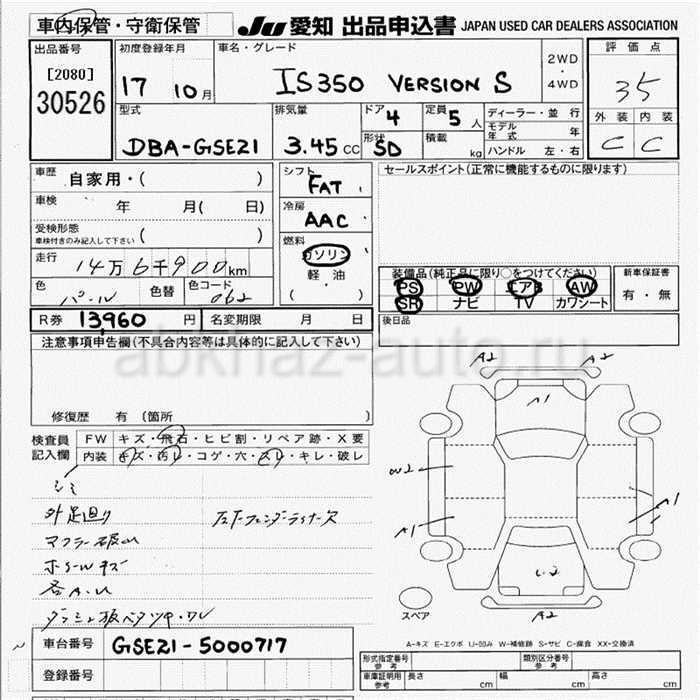 車内保管・守衛保管
JU 愛知 出品申込書 JAPAN USED CAR DEALERS ASSOCIATION
出品番号 初度登録年月 車名・グレード 評価点
[2080]
30526 17 10月 IS350 VERSION S 2WD・4WD 35
型式 排気量 ドア 4 定員 5人 ディーラー・並行 外装 内装
DBA-GSE21 3.45 CC 形状 SD 積載 kg モデル年式 年 C C
ハンドル 左・右
車歴 自家用・( ) シフト FAT セールスポイント(正常に機能するものに限ります)
車検 年 月( 日) 冷房 AAC
受検形態
車検付きのみ記入して下さい ( ) 燃料 ガソリン
走行 14万6千900km 軽・油 装備品(純正品に限り○をつけてください) 新車保証書
色 パール 色替 色コード 062 ( ) PS PW エアB AW 有・無
SR ナビ TV カワシート
R券 13960円 名変期限 月 日 後日品
注意事項申告欄(不具合内容等は具体的に記入して下さい)
abkhaz-auto.ru
A2 A2
A1
修復歴 有 (箇所 )
検査員 FW キズ・飛石・ヒビ割・リペア跡・X要
記入欄 内装 キズ・汚レ・コゲ・穴・スレ・キレ・破レ
シミ
外足廻り
A1 A1
A2
スペア
車台番号 GSE21-5000717
A-キズ E-エクボ U-凹み W-補修跡 S-サビ C-腐食 XX-交換済
登録番号
形式指定番号 参考 類別区分番号 参考
車庫証明用 参考 長さ cm 幅 cm 高さ cm